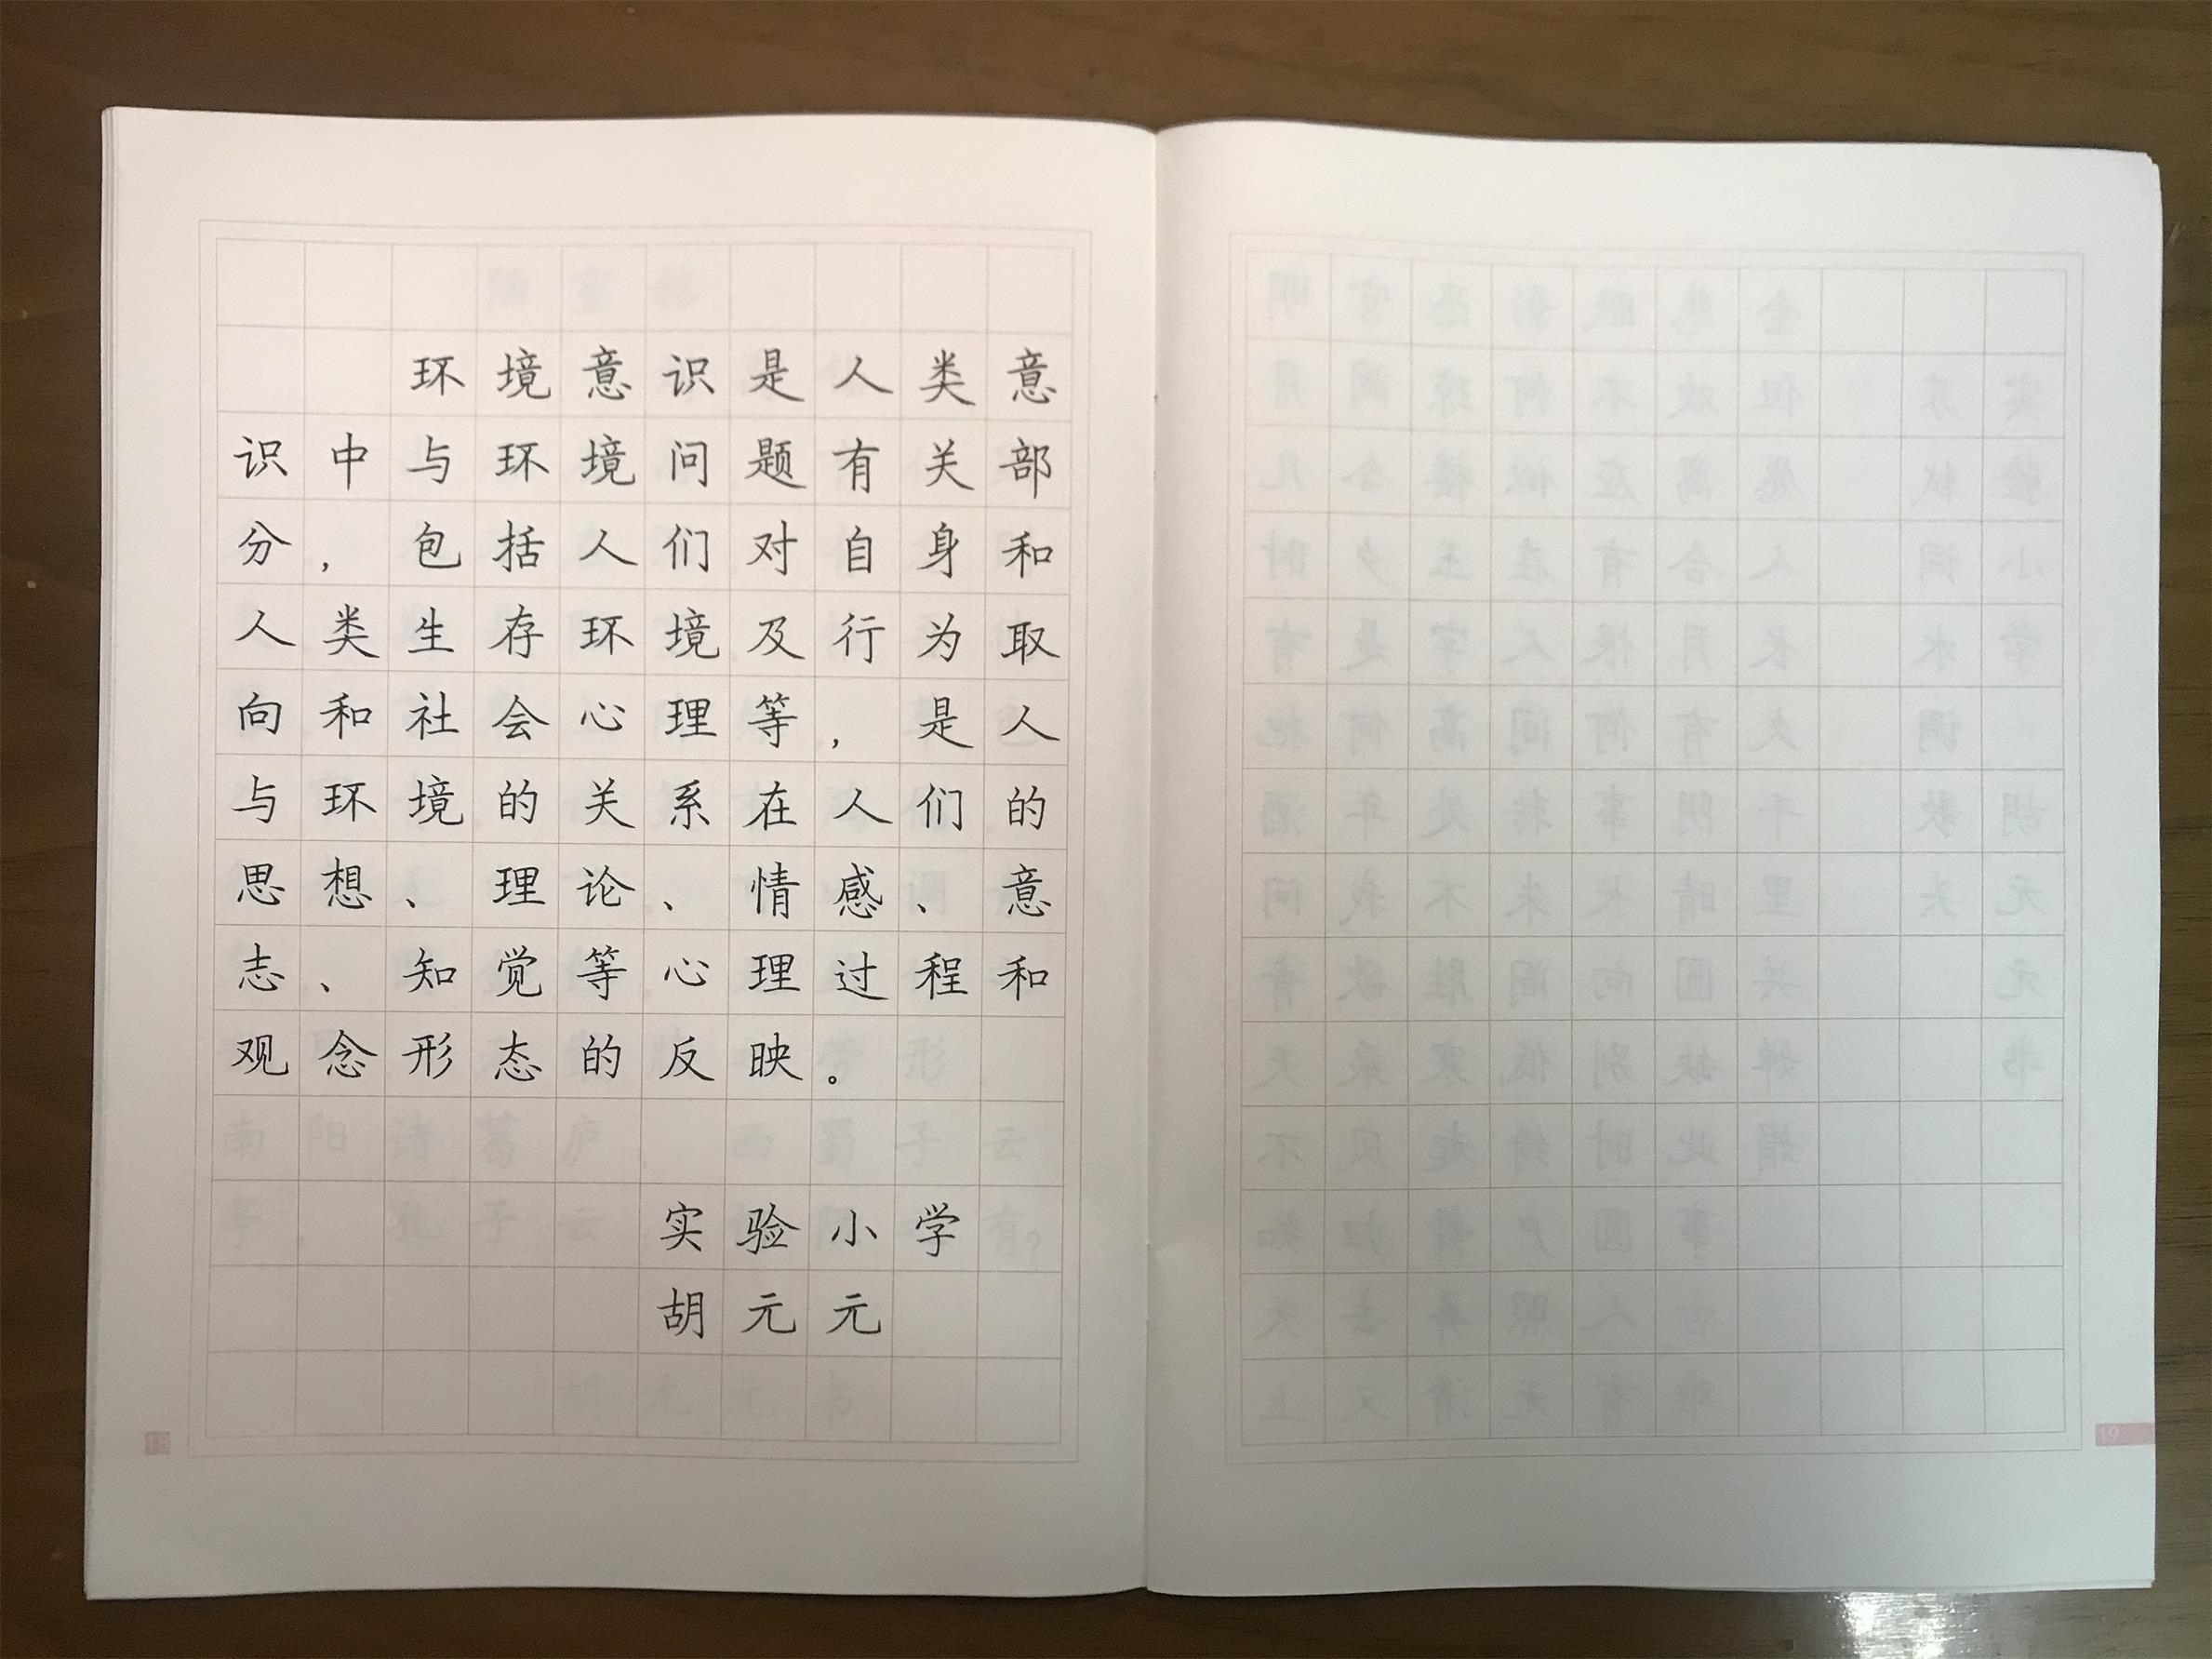 环境意识是人类意
识中与环境问题有关部
分，包括人们对自身和
人类生存环境及行为取
向和社会心理等，是人
与环境的关系在人们的
思想、理论、情感、意
志、知觉等心理过程和
观念形态的反映。
实验小学
胡元元
19